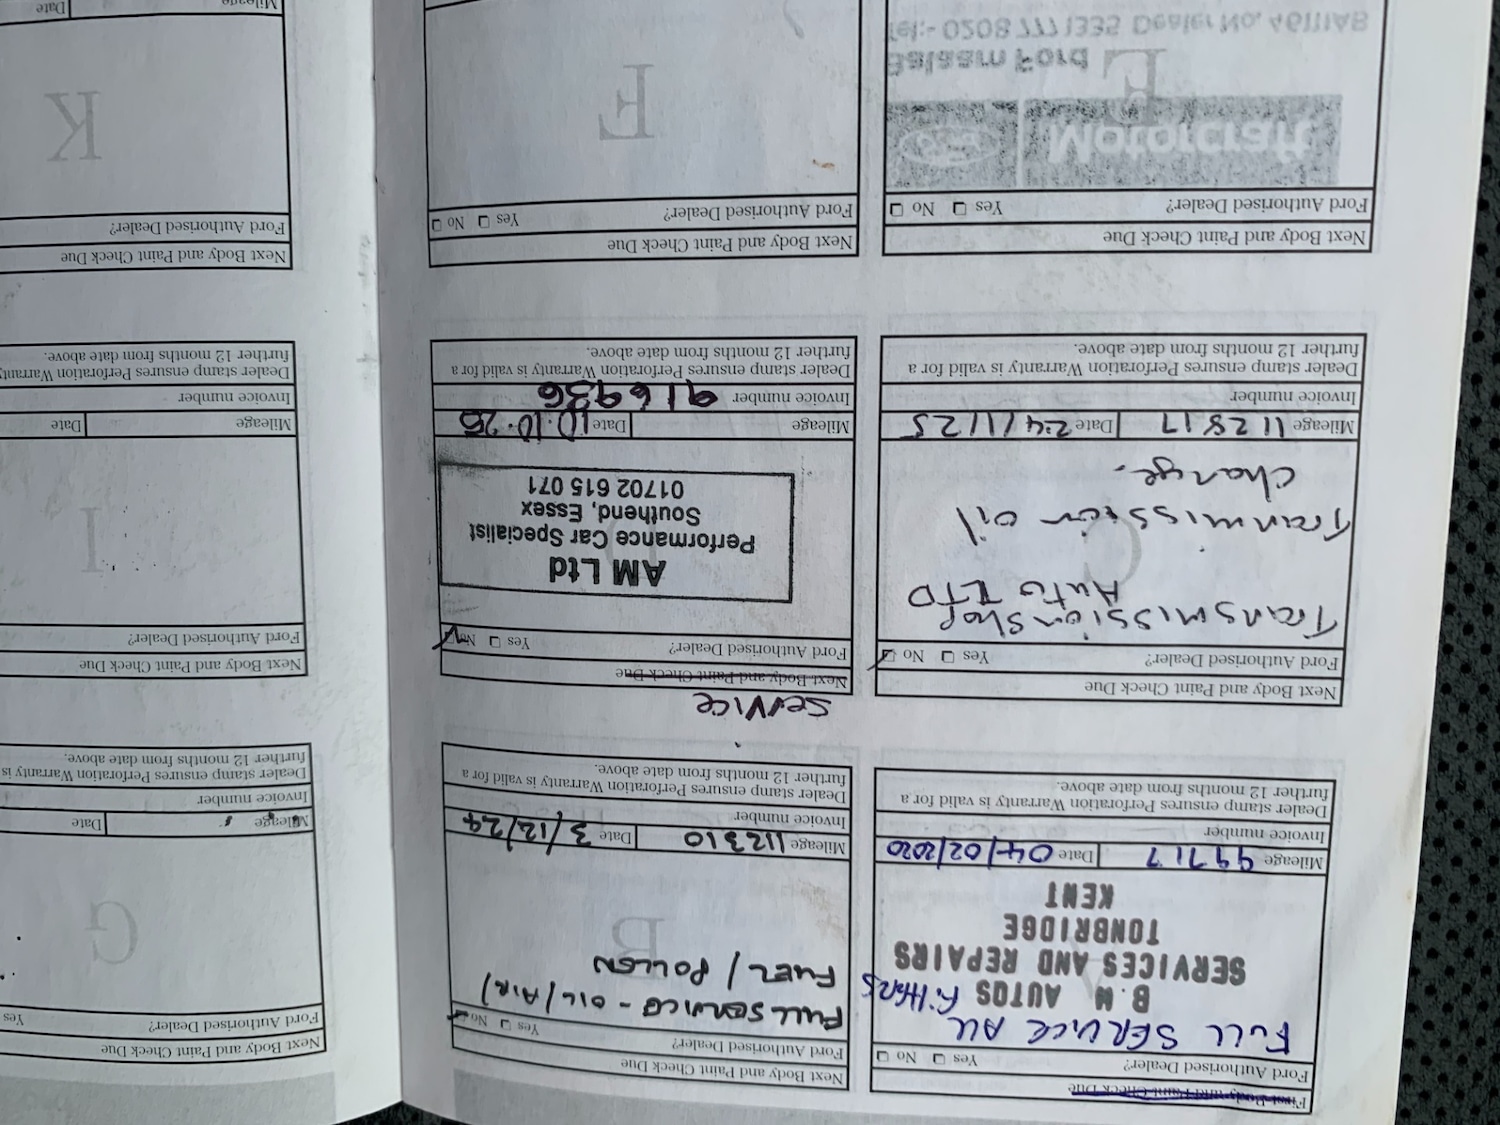 First Body and Paint Check Due
Ford Authorised Dealer? Yes ❏ No ❏
FULL SERVICE ALL
Filters
B.M AUTOS
SERVICES AND REPAIRS
TONBRIDGE
KENT
Mileage 99717 Date 04/02/2020
Invoice number
Dealer stamp ensures Perforation Warranty is valid for a
further 12 months from date above.
Next Body and Paint Check Due
Ford Authorised Dealer? Yes ❏ No ❏
FULL SERVICE - OIL/AIR/
FUEL / POLLEN
B
Mileage 112310 Date 3/12/24
Invoice number
Dealer stamp ensures Perforation Warranty is valid for a
further 12 months from date above.
Next Body and Paint Check Due
Ford Authorised Dealer? Yes
G
Mileage Date
Invoice number
Dealer stamp ensures Perforation Warranty is
further 12 months from date above.
Next Body and Paint Check Due
Ford Authorised Dealer? Yes ❏ No ❏
Transmission Shop
Auto LTD
C
Tranmission oil
change.
Mileage 112817 Date 24/11/25
Invoice number
Dealer stamp ensures Perforation Warranty is valid for a
further 12 months from date above.
Service
Next Body and Paint Check Due
Ford Authorised Dealer? Yes ❏ No ❏
AM Ltd
Performance Car Specialist
Southend, Essex
01702 615 071
D
Mileage Date 10.10.25
Invoice number 916936
Dealer stamp ensures Perforation Warranty is valid for a
further 12 months from date above.
Next Body and Paint Check Due
Ford Authorised Dealer?
I
Mileage Date
Invoice number
Dealer stamp ensures Perforation Warranty
further 12 months from date above.
Next Body and Paint Check Due
Ford Authorised Dealer? Yes ❏ No ❏
Ford Motorcraft
E
Balaam Ford
Tel:- 0208 777 1335 Dealer No. 46111AB
Next Body and Paint Check Due
Ford Authorised Dealer? Yes ❏ No ❏
F
Next Body and Paint Check Due
Ford Authorised Dealer?
K
Mileage Date